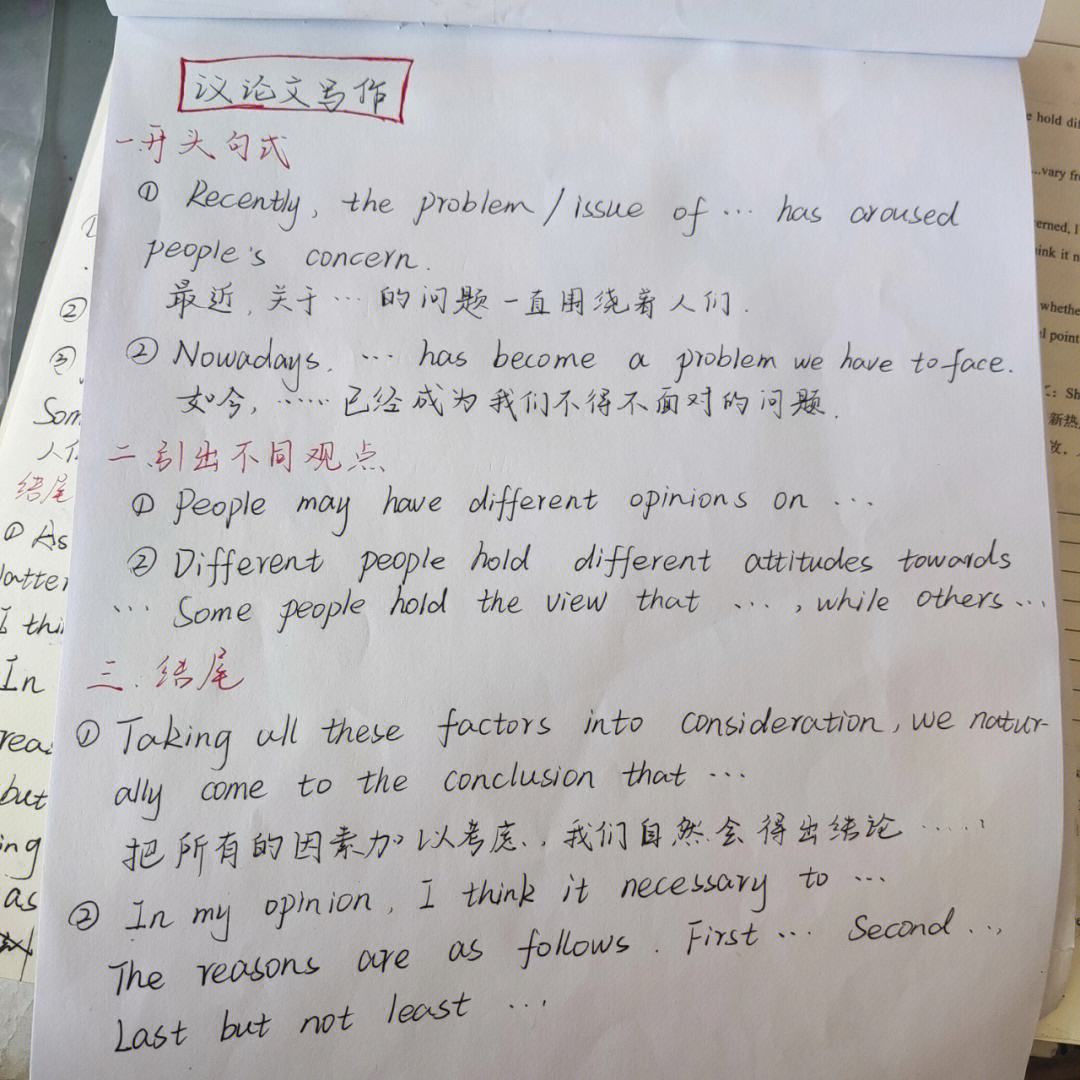 议论文写作
一.开头句式
① Recently, the problem / issue of ... has aroused
people's concern.
最近, 关于 ... 的问题一直围绕着人们.
② Nowadays, ... has become a problem we have to face.
如今, ...... 已经成为我们不得不面对的问题.
二.引出不同观点
① People may have different opinions on ...
② Different people hold different attitudes towards
... Some people hold the view that ..., while others ...
三.结尾
① Taking all these factors into consideration, we natur-
ally come to the conclusion that ...
把所有的因素加以考虑, 我们自然会得出结论 ......
② In my opinion, I think it necessary to ...
The reasons are as follows. First ... Second ...,
Last but not least ...
②
③
Som
结尾
① As
latter
I thi
In
rea
but
ing
as
e hold dif
...vary fr
erned, I
ink it n
whethe
l point
: Sh
新热